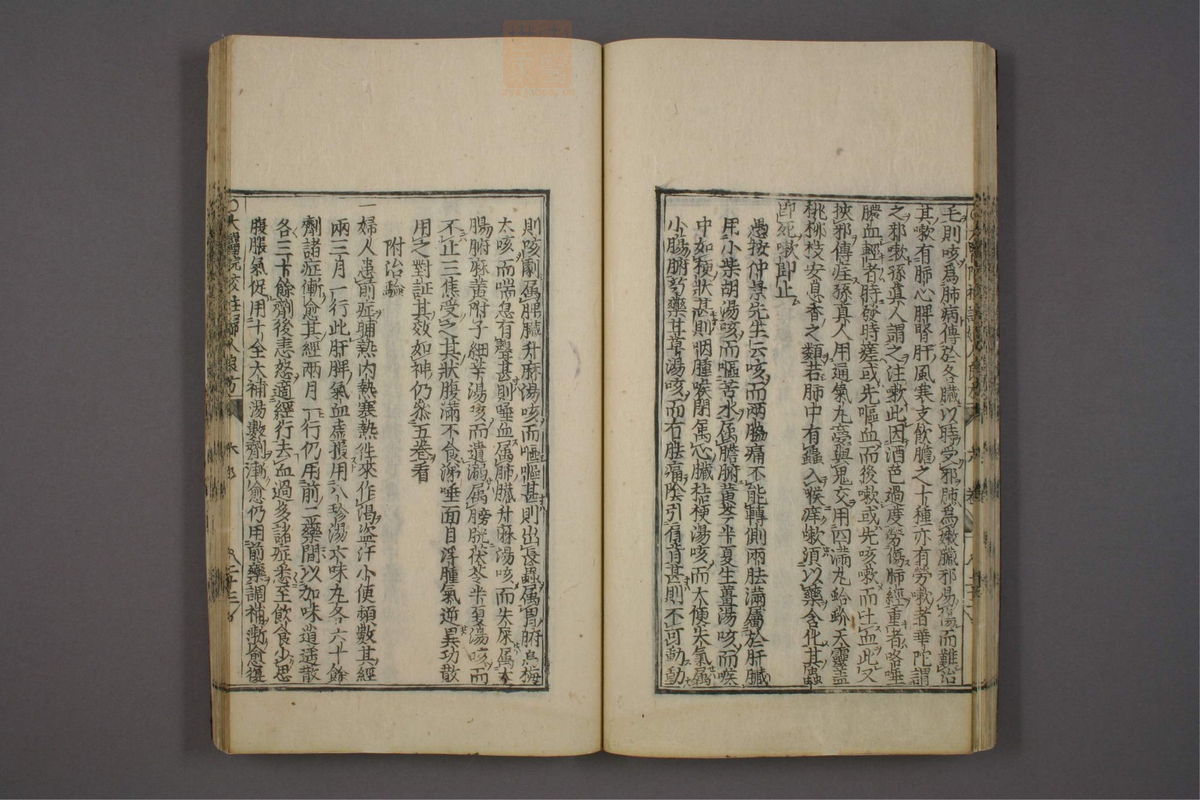 毛則咳爲肺病傳於各臟以時受邪肺爲嫩臟邪易傷而難治
其嗽有肺心脾腎肝風寒支飲膽之十種亦有勞嗽者華陀謂
之邪嗽孫眞人謂之注嗽此因酒色過度勞傷肺經重者咯唾
膿血輕者時發時瘥或先嘔血而後嗽或先咳嗽而吐血此又
挾邪傳疰孫眞人用通氣丸四滿丸蛤蚧天靈蓋
桃桃枝安息香之類若肺中有蟲入喉痒嗽須以藥含化其蟲
即死嗽即止
愚按仲景先生云咳而兩脇痛不能轉側兩胠滿屬於肝臟
用小柴胡湯咳而嘔苦水属膽腑黃芩半夏生薑湯咳而喉
中如梗狀甚則咽腫喉閉属心臟桔梗湯咳而大便失氣属
小腸腑芍藥甘草湯咳而右胠痛陰引肩背甚則不可動動
則咳劇属脾臟升麻湯咳而嘔嘔甚則出長蟲属胃腑烏梅
太咳而喘息有聲甚則唾血属肺臟升麻湯咳而失屎属大
腸腑麻黃附子細辛湯咳而遺溺属膀胱茯苓半夏湯咳而
不止三焦受之其狀腹滿不食涕唾面目浮腫氣逆異功散
用之對証其效如神仍叅五卷看
附治驗
一婦人患前症晡熱內熱寒熱徃來作渴盜汗小便頻數其經
兩三月一行此肝脾氣血虛損用八珍湯六味丸各六十餘
劑諸症漸愈其經兩月一行仍用前二藥間以加味逍遥散
各三十餘劑後恚怒適經行去血過多諸症悉至飲食少思
腹脹氣促用十全大補湯數劑漸愈仍用前藥調補漸愈復